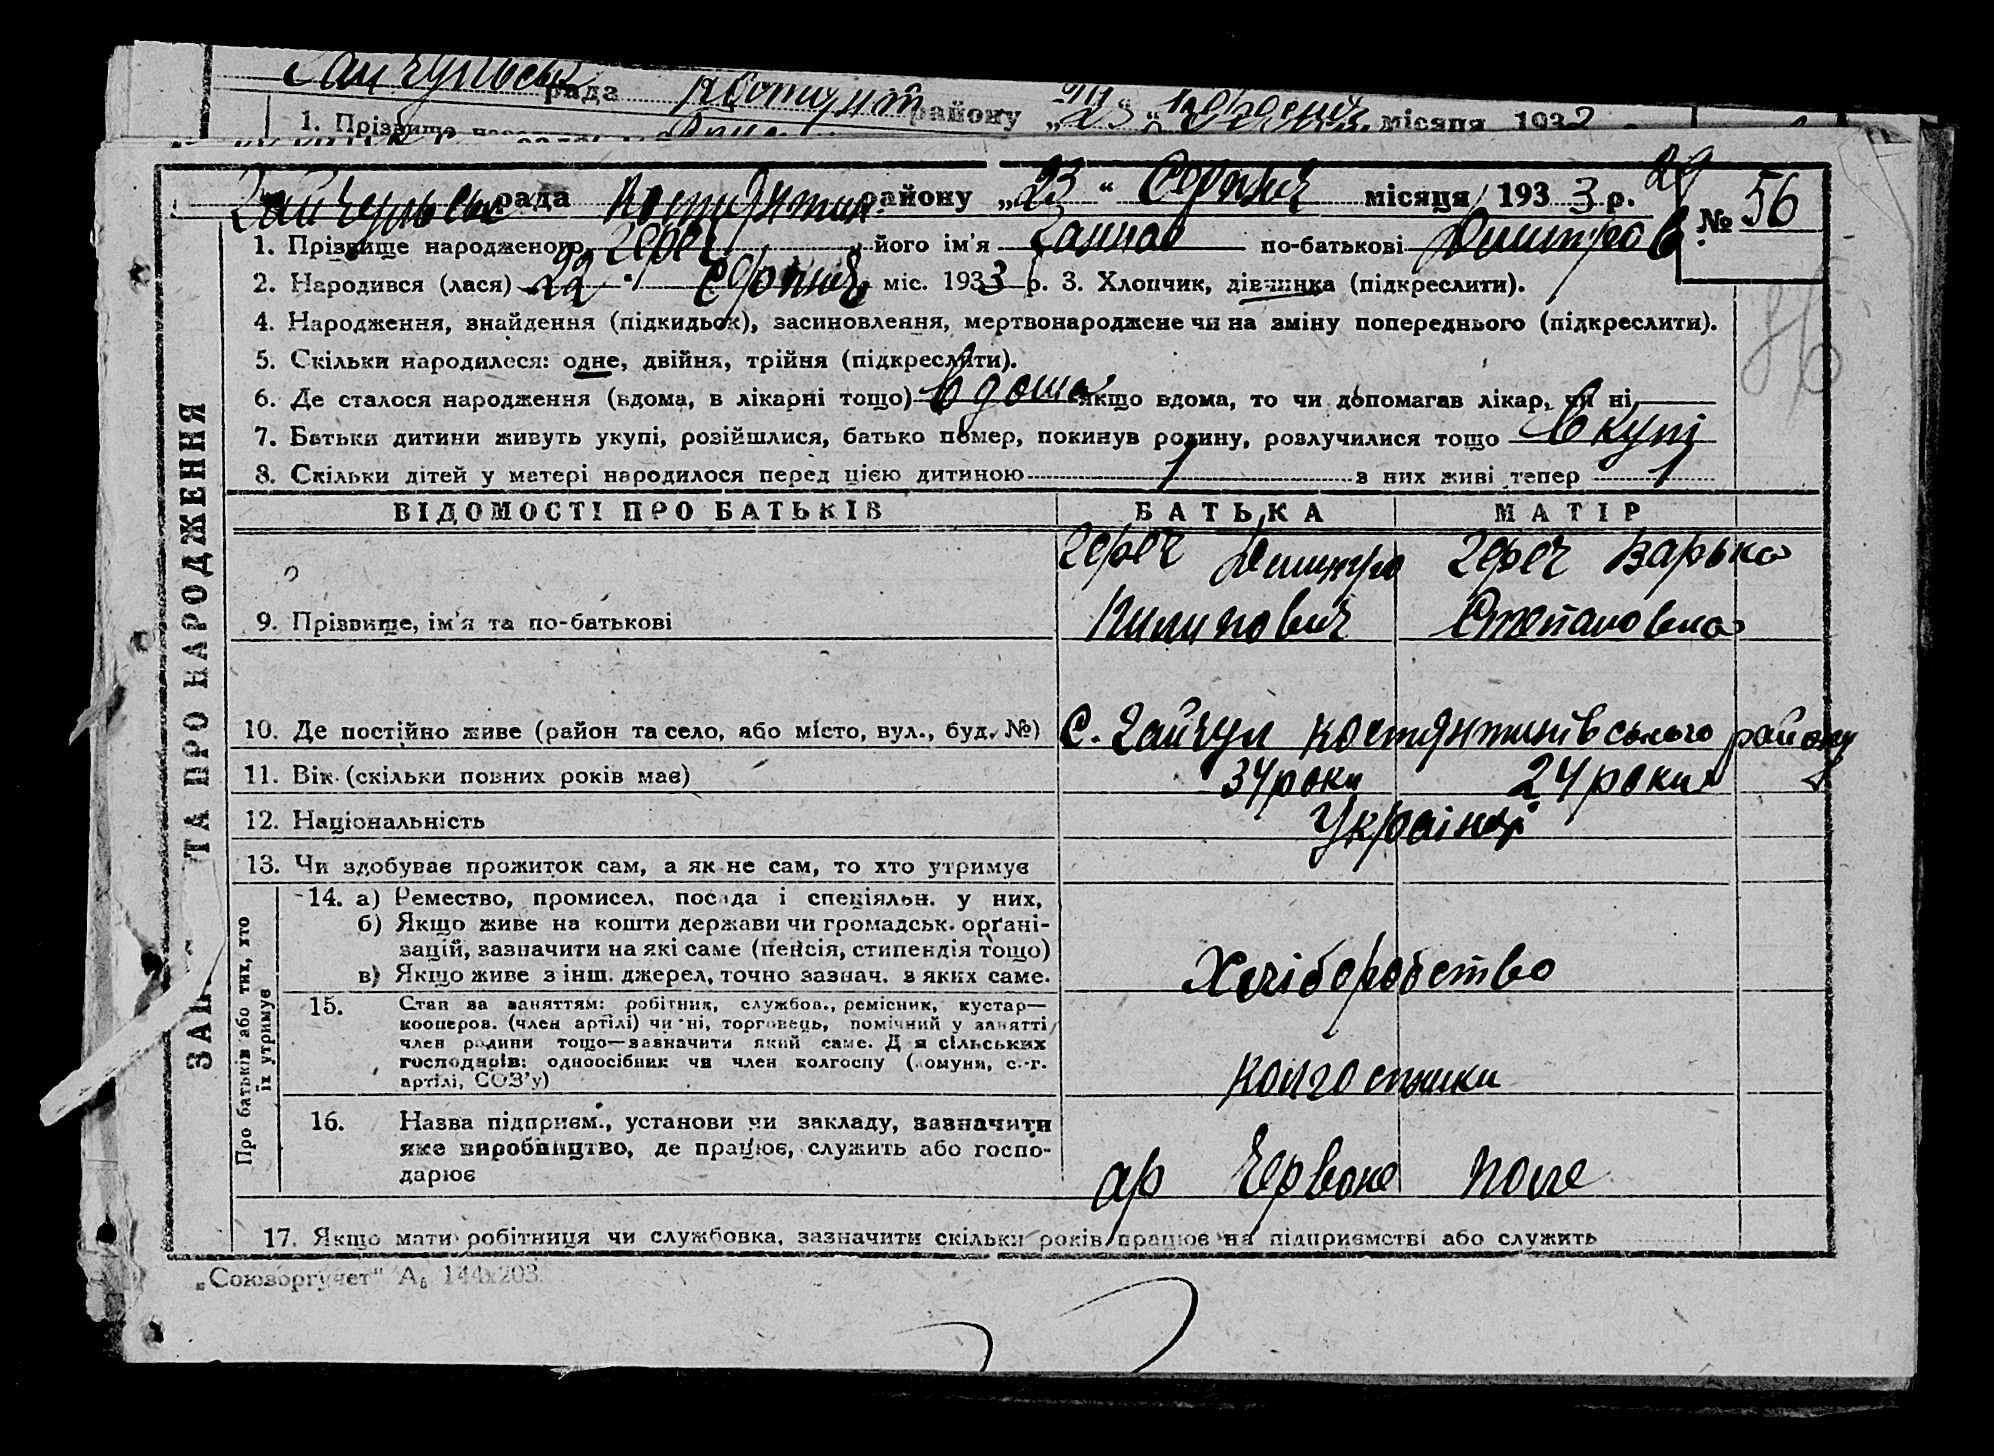 Гайчульськ рада Костянт району „23" місяця 1932
1. Прізвище
Гайчульськ рада Костянтин району „23" Серпня місяця 1933 р.
№ 56
1. Прізвище народженого Герег його ім'я Ганна по-батькові Дмитров
2. Народився (лася) 22 Серпня міс. 1933 р. 3. Хлопчик, дівчинка (підкреслити).
4. Народження, знайдення (підкидьок), засиновлення, мертвонароджене чи на зміну попереднього (підкреслити).
5. Скільки народилося: одне, двійня, трійня (підкреслити).
6. Де сталося народження (вдома, в лікарні тощо) Вдома якщо вдома, то чи допомагав лікар, чи ні
7. Батьки дитини живуть укупі, розійшлися, батько помер, покинув родину, розлучилися тощо Вкупі
8. Скільки дітей у матері народилося перед цією дитиною 1 з них живі тепер 1
ВІДОМОСТІ ПРО БАТЬКІВ БАТЬКА МАТІР
Герег Дмитро Герег Варька
9. Прізвище, ім'я та по-батькові Пилипович Степановна
10. Де постійно живе (район та село, або місто, вул., буд. №) С. Гайчул Костянтинівського району
11. Вік (скільки повних років має) 34 роки 24 роки
12. Національність Українці
13. Чи здобуває прожиток сам, а як не сам, то хто утримує
Про батьків або тих, хто їх утримує
14. а) Ремество, промисел, посада і спеціяльн. у них,
б) Якщо живе на кошти держави чи громадськ. орґані-
зацій, зазначити на які саме (пенсія, стипендія тощо)
в) Якщо живе з інш. джерел, точно зазнач. з яких саме. Хліборобство
15. Стан за заняттям: робітник, службов., ремісник, кустар—
кооперов. (член артілі) чи ні, торговець, помічний у занятті
член родини тощо—зазначити який саме. Для сільських
господарів: одноосібник чи член колгоспу (комуни, с.-г.
артілі, СОЗ'у) колгоспники
16. Назва підприєм., установи чи закладу, зазначити
яке виробництво, де працює, служить або госпо-
дарює ар Червоне поле
17. Якщо мати робітниця чи службовка, зазначити скільки років працює на підприємстві або служить
„Союзоргучет" А₆ 144х203.
ТА ПРО НАРОДЖЕННЯ